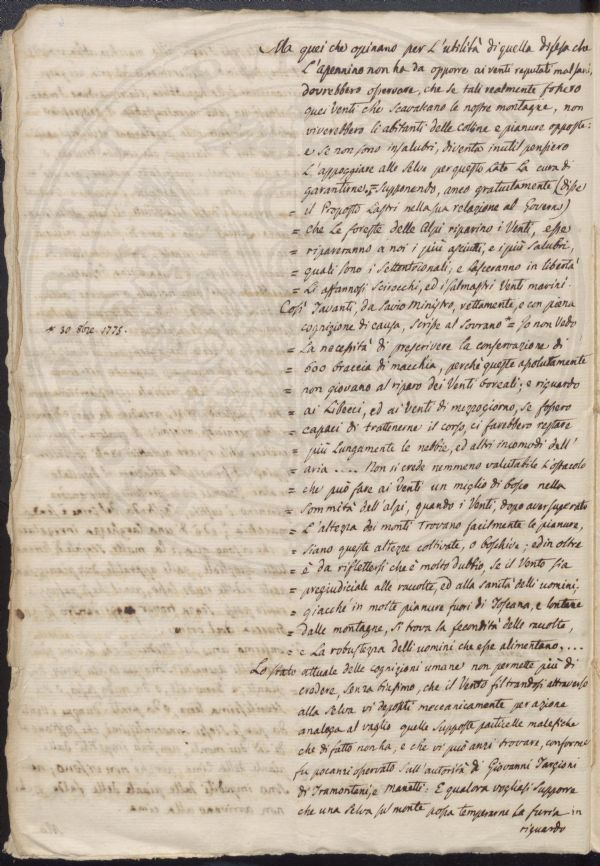 Ma quei che opinano per L'utilità di quella difesa che
L'apennino non ha da opporre ai venti reputati mal sani,
dovrebbero osservare, che se tali realmente fossero
quei venti che scavalcano le nostre montagne, non
viverebbero li abitanti delle colline e pianure opposte:
e se non sono insalubri, diventa inutil pensiero
L'appoggiare alle Selve per questo Lato La cura di
garantirne. = Supponendo, anco gratuitamente (disse
= il Proposto Lastri nella sua relazione al Governo)
= che Le foreste delle Alpi riparino i Venti, esse
= ripareranno a noi i più asciutti, e i più Salubri,
= quali sono i Settentrionali; e Lasceranno in libertà
= Li affannosi Scirocchi, ed i salmastri Venti marini.
Così Tavanti, da Savio Ministro, rettamente, e con piena
cognizione di causa, scrisse al Sovrano * = Io non Vedo
* 30 8bre. 1775.
= La necessità di prescrivere la conservazione di
= 600 braccia di macchia, perchè queste assolutamente
= non giovano al riparo dei Venti boreali; e riguardo
= ai Libecci, ed ai Venti di mezzogiorno, se fossero
= capaci di trattenerne il corso, ci farebbero restare
= più Lungamente le nebbie, ed altri incomodi dell'
= aria .... Non si crede nemmeno valutabile L'ostacolo
= che può fare ai Venti un miglio di bosco nella
= Sommità dell'alpi, quando i Venti, dopo aver superato
= L'altezza dei monti trovano facilmente le pianure,
= siano queste altezze coltivate, o boschive; ed in oltre
= è da riflettersi che è molto dubbio, se il Vento sia
= pregiudiciale alle raccolte, ed alla sanità delli uomini;
= giacchè in molte pianure fuori di Toscana, e lontane
= dalle montagne, si trova la fecondità delle raccolte,
= e La robustezza delli uomini che esse alimentano, ...
Lo stato attuale delle cognizioni umane non permette più di
credere, senza biasimo, che il Vento filtrandosi attraverso
alla Selva vi depositi meccanicamente per azione
analoga al vaglio quelle supposte particelle malefiche
che di fatto non ha, e che vi può anzi trovare, conforme
fu pocanzi osservato sull'autorità di Giovanni Targioni
di Tramontani, e Manetti. E qualora vogliasi supporre
che una selva sul monte possa temperarne La furia in
riguardo